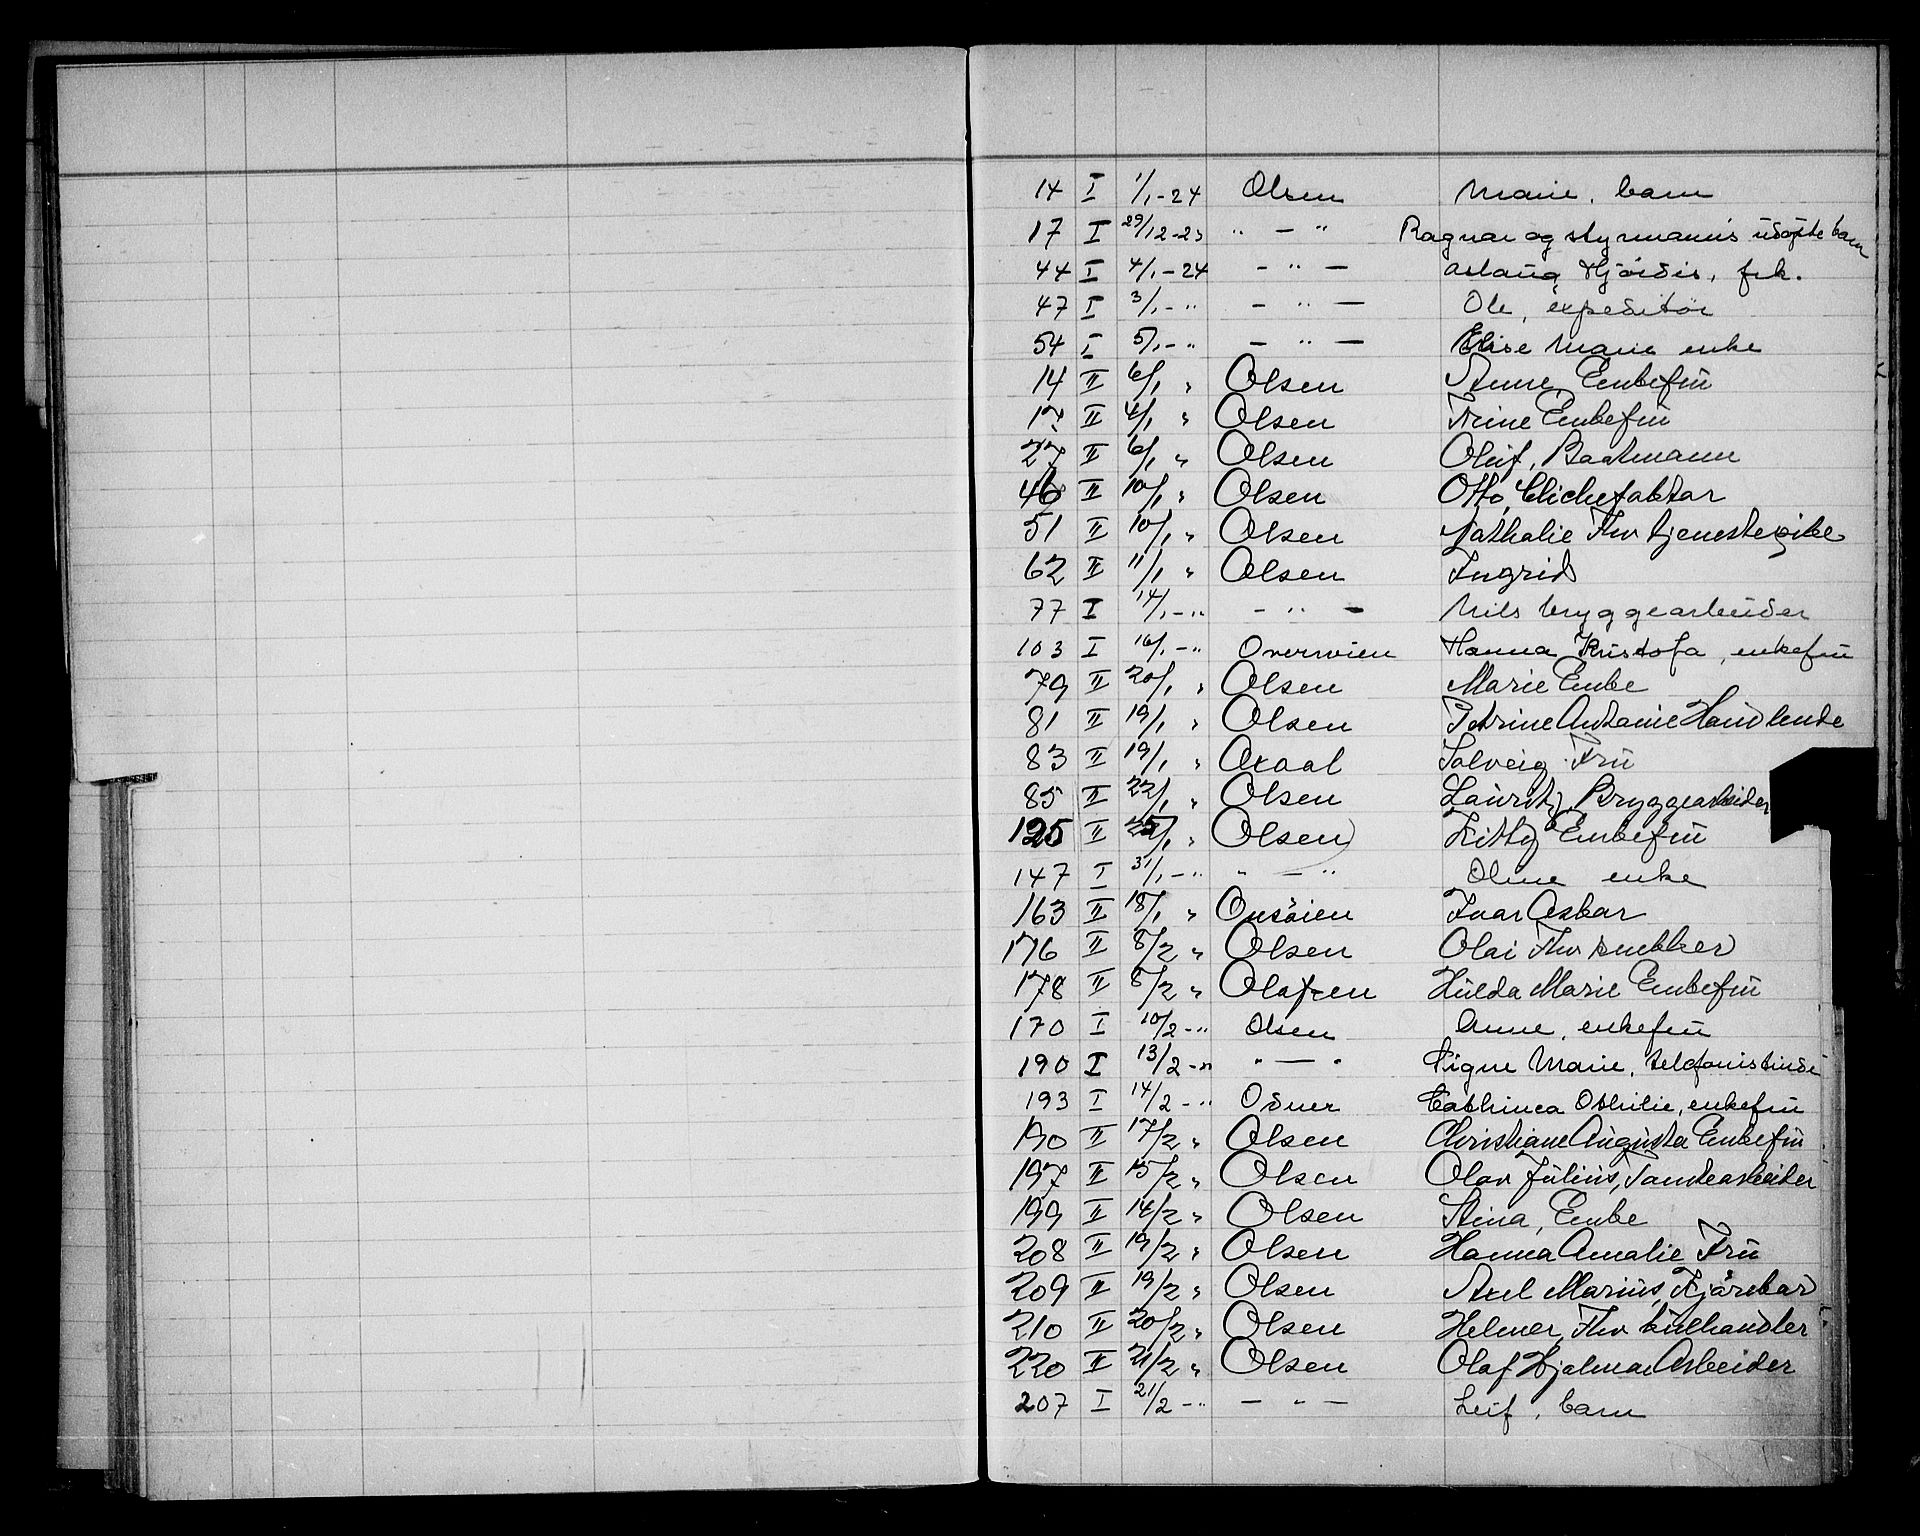 14 I 1/1-24 Olsen Marie, barn
17 I 29/12-23 " — " Ragnar og styrmannis udøpte barn
44 I 4/1-24 — " — Aslaug Hjørdis, frk.
47 I 3/1-" — " — Ole, expeditør
54 I 5/1-" — " — Elise Marie enke
14 II 6/1 " Olsen Anne, Enkefrü
17 II 4/1 " Olsen Trine Enkefrü
27 II 6/1 " Olsen Oluf, Baatmann
46 II 10/1 " Olsen Otto, Clichefaktor
51 II 10/1 " Olsen Nathalie Fhv tjenestepike
62 II 11/1 " Olsen Ingrid
77 I 14/1-" — " — Nils bryggearbeider
103 I 16/1-" Overvien Hanna Kristofa, enkefrü
79 II 20/1 " Olsen Marie Enke
81 II 19/1 " Olsen Petrine Antonie Handlende
83 II 19/1 " Oxaal Solveig Frü
85 II 22/1 " Olsen Lauritz, Bryggearbeider
125 II 25/1 " Olsen Kitty Enkefrü
147 I 31/1-" " — " Oline enke
163 II 18/1 " Onsøien Ivar Oskar
176 II 8/2 " Olsen Olai Fhv snekker
178 II 8/2 " Olafsen Hulda Marie Enkefrü
170 I 10/2-" Olsen Anne, enkefrü
190 I 13/2-" " — " Signe Marie, telefonistinde
193 I 14/2-" Osner Cathinca Othilie, enkefrü
190 II 17/2 " Olsen Christiane Augusta Enkefrü
197 II 15/2 " Olsen Olav Julius, Tomtearbeider
199 II 14/2 " Olsen Stina, Enke
208 II 19/2 " Olsen Hanna Amalie Frü
209 II 19/2 " Olsen Axel Marius, Kjørekar
210 II 20/2 " Olsen Helmer, Fhv kulhandler
220 II 21/2 " Olsen Olaf Hjalmar Arbeider
207 I 21/2-" — " — Leif, barn